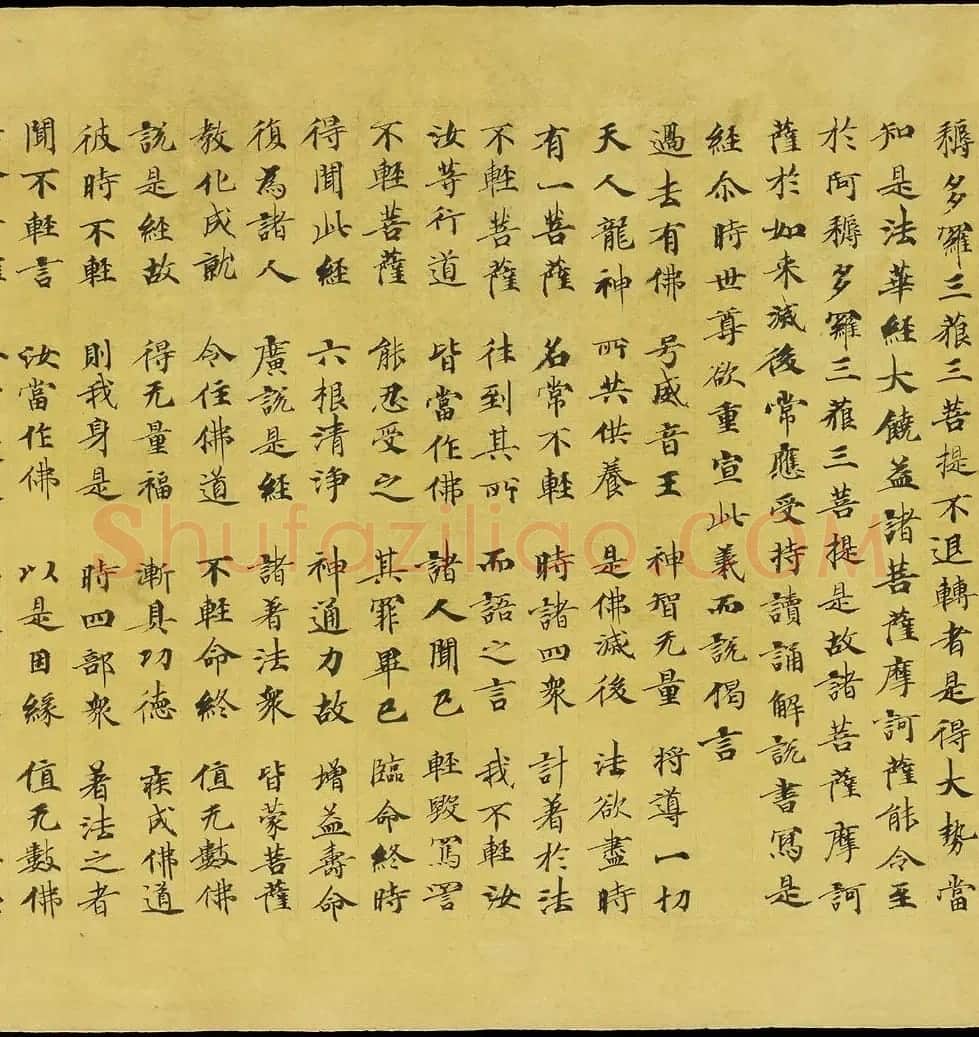 耨多羅三藐三菩提不退轉者是得大勢當
知是法華經大饒益諸菩薩摩訶薩能令至
於阿耨多羅三藐三菩提是故諸菩薩摩訶
薩於如來滅後常應受持讀誦解說書寫是
經尒時世尊欲重宣此義而說偈言
過去有佛 号威音王 神智无量 將導一切
天人龍神 所共供養 是佛滅後 法欲盡時
有一菩薩 名常不輕 時諸四衆 計著於法
不輕菩薩 往到其所 而語之言 我不輕汝
汝等行道 皆當作佛 諸人聞已 輕毀罵詈
不輕菩薩 能忍受之 其罪畢已 臨命終時
得聞此經 六根清淨 神通力故 增益壽命
復為諸人 廣說是經 諸著法衆 皆蒙菩薩
教化成就 令住佛道 不輕命終 值无數佛
說是經故 得无量福 漸具功德 疾成佛道
彼時不輕 則我身是 時四部衆 著法之者
聞不輕言 汝當作佛 以是因緣 值无數佛
Shufaziliao.COM